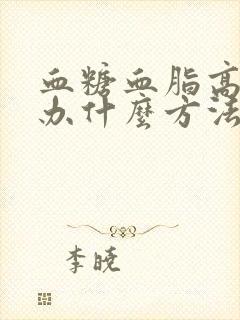 血糖血脂高
办什麼方法
李晓